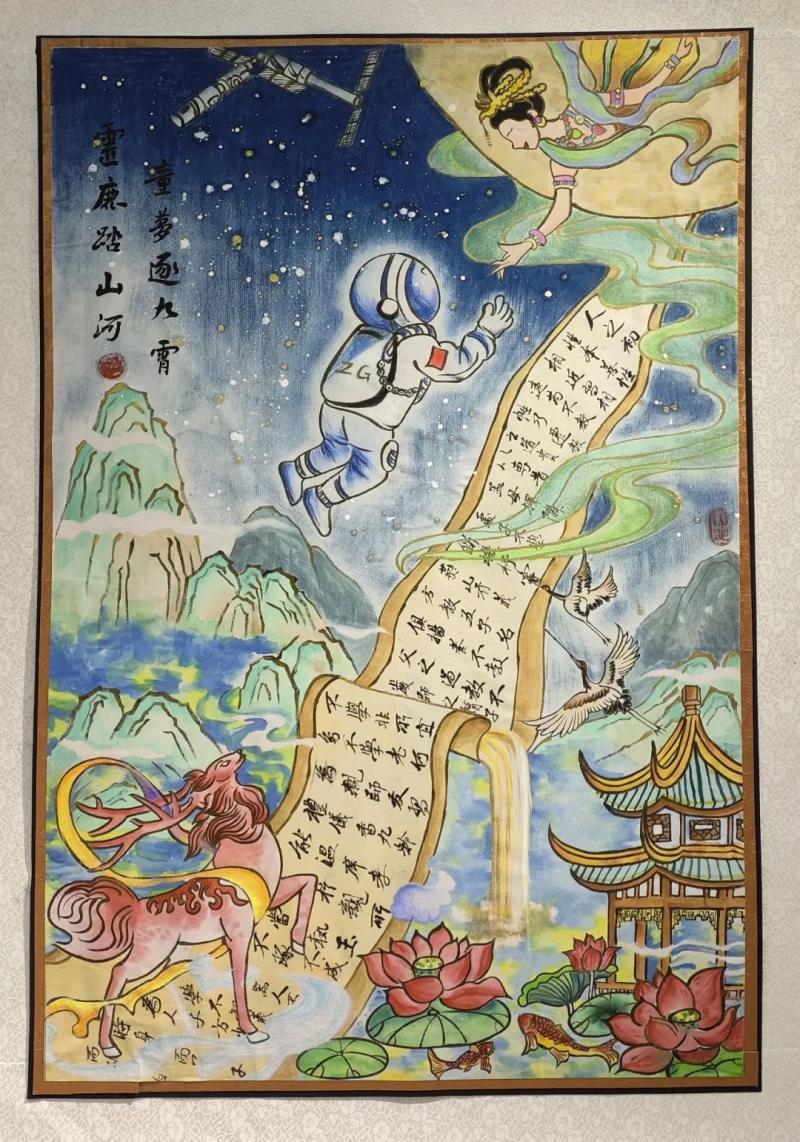 童夢逐九霄
靈鹿踏山河
ZG
人之初
性本善性
相近習相
遠苟不教
性乃遷教
之道貴
以專昔
孟母擇鄰
處子不學
斷機杼竇
燕山有義
方教五子名
俱揚養不教
父之過教不
嚴師之惰子
不學非所宜
為不學老何
為親師友習
禮儀香九齡
能溫席孝
於親所
當執玉
不琢不成
人不
學不知義
為人子方